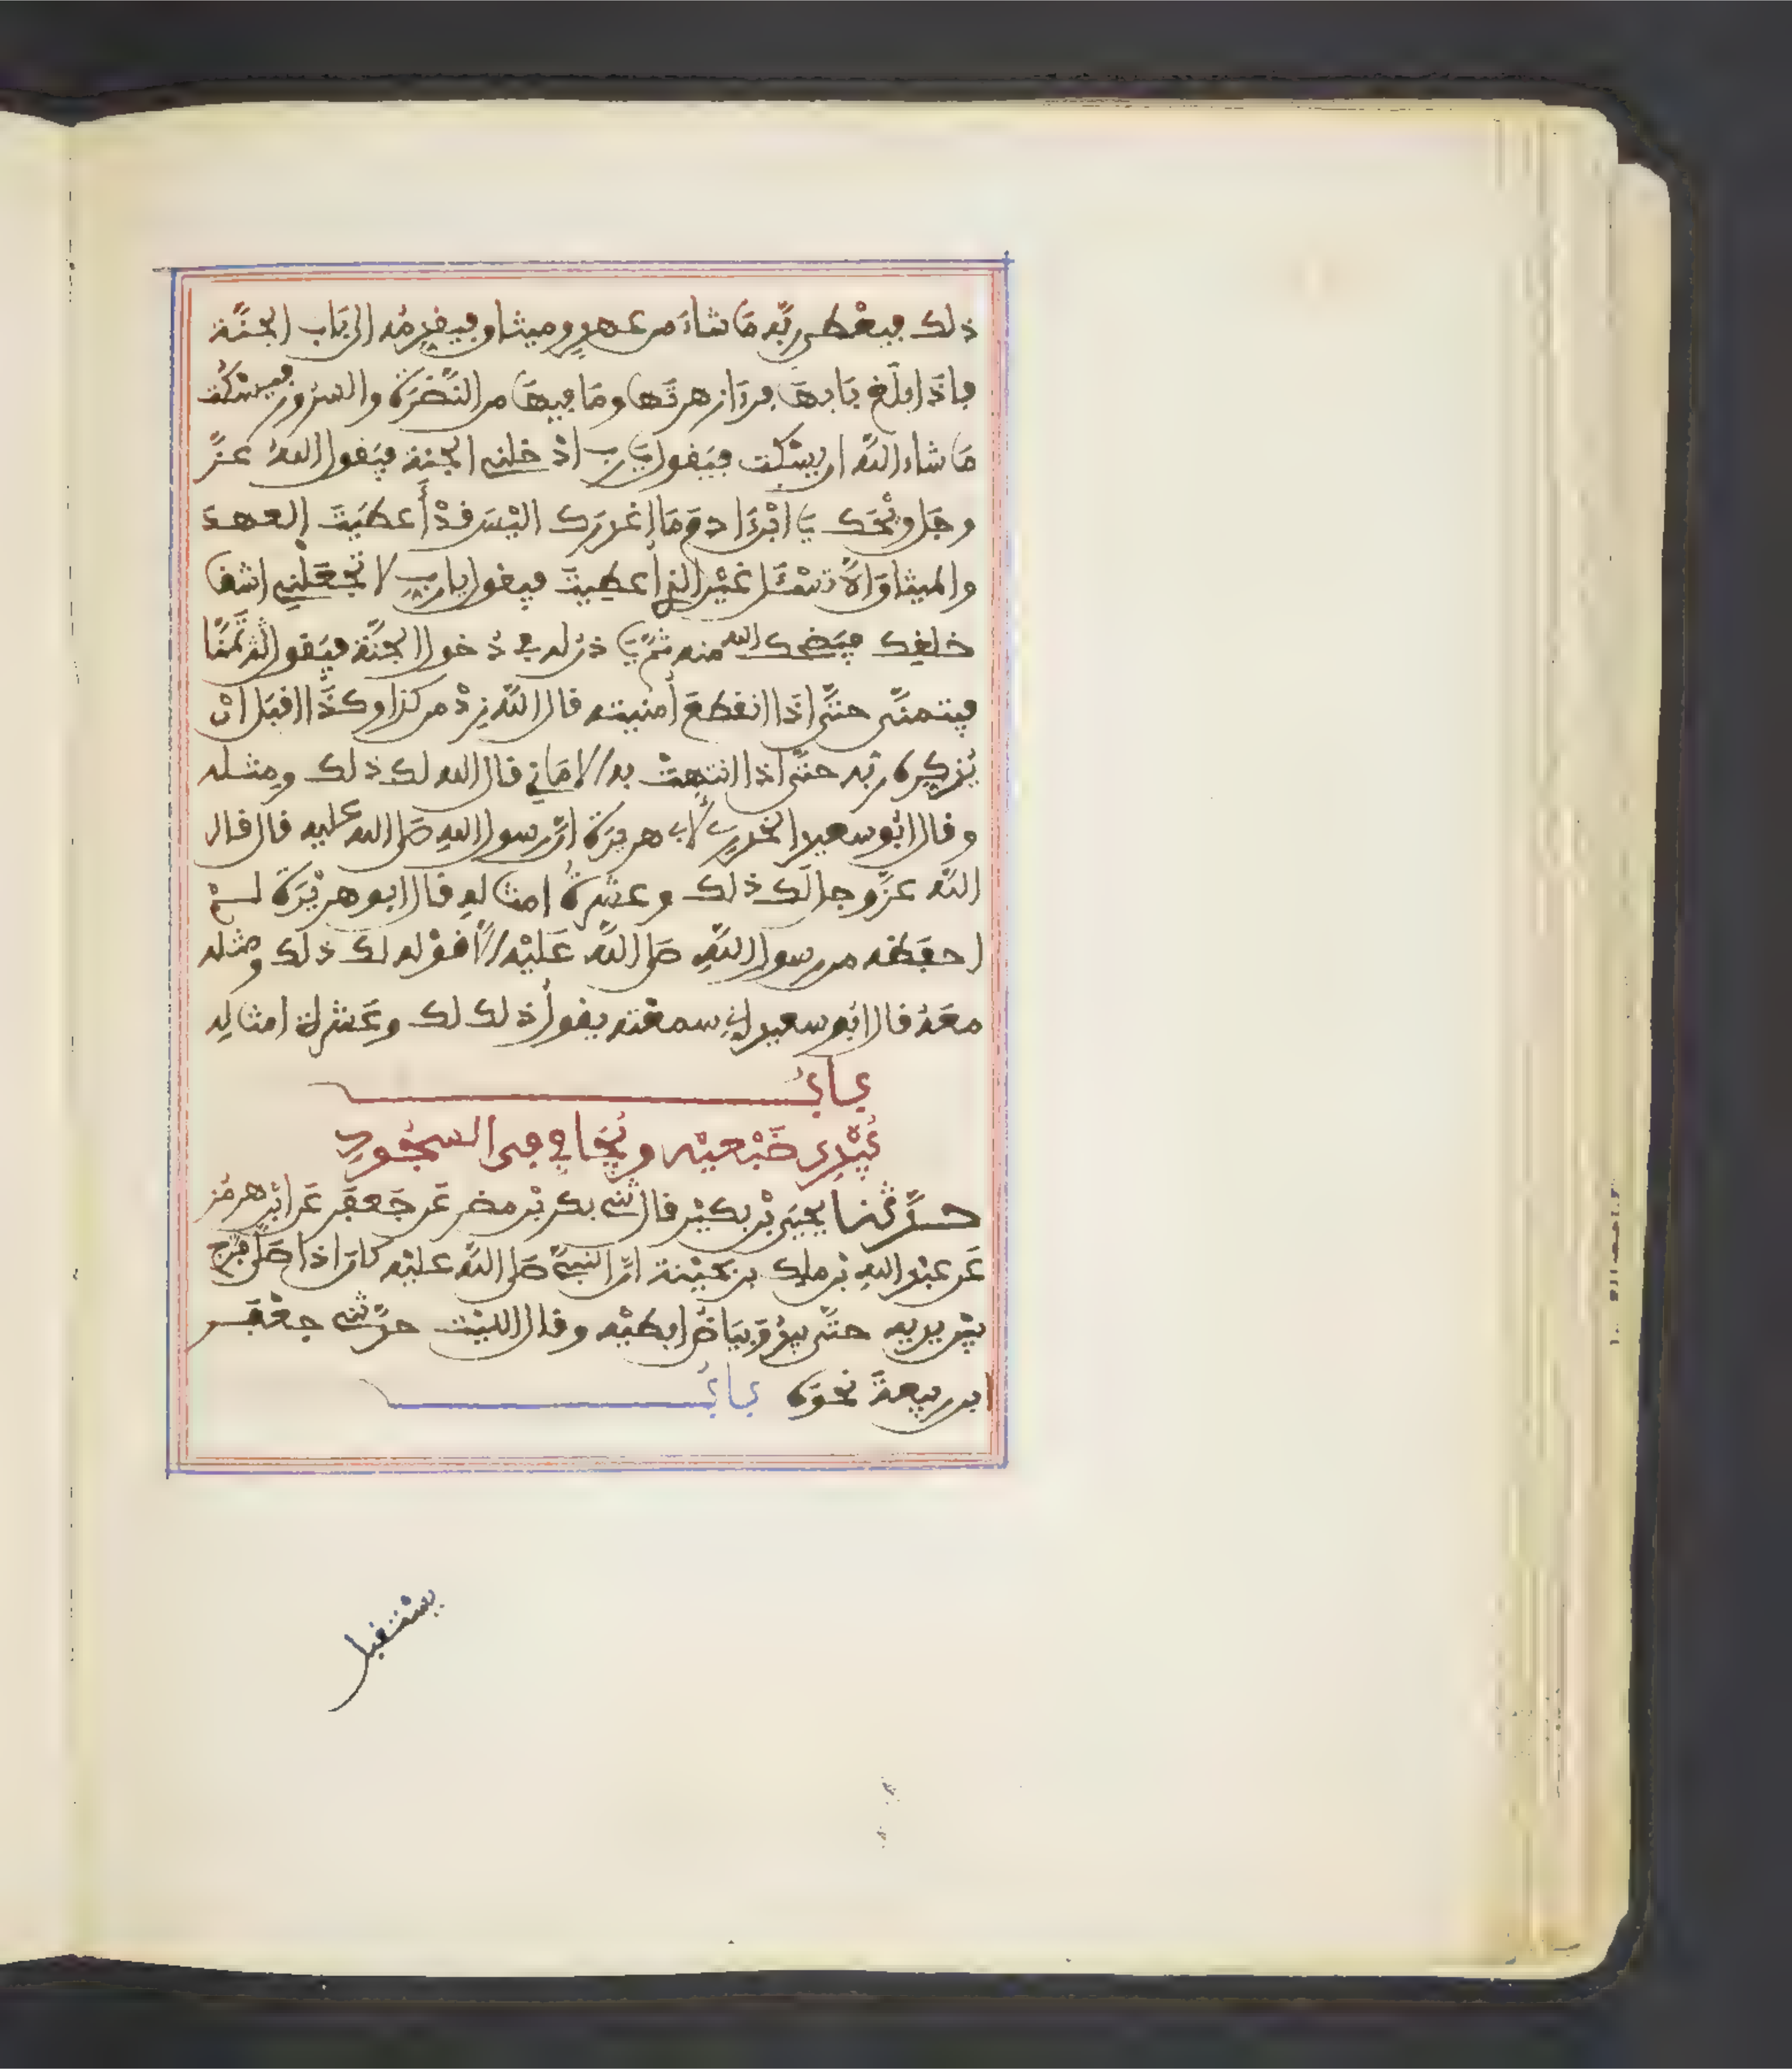 ذلك فيعطي ربَّه مَا شاءَ من عهدٍ وميثاق فيقدِّمُه الى بَاب الجنَّة
فإذَا بلَغ بَابهَا فرءَا زهرتَها ومَا فيهَا من النَّضْرَة والسُرُور فيسْكُت
مَا شاء اللَّه ان يسْكت فيَقول يَا رب ادْخلني الجنة فيَقول اللهُ عزَّ
وجَل ويْحَك يَا ابْنَ ادم مَا اغدرك اليْسَ قدْ أَعطَيتَ العهدَ
والميثاق اَلَّا تسْئَل غيْر الذي أعطيتَ فيقول يا ربِ لا تجْعَلْني اشقى
خلقك فيَضحك الله منه ثمَّ يَاذن له في دُخول الجنَّة فيَقول لهُ تَمَنَّ
فيتمنَّى حتَّى اذَا انقطعَ أمنيته قال اللَّه زِدْ من كذا وكذَا اقبَل انْ
يُذكِره ربُه حتَّى اذا انتهتْ به الامَاني قال الله لك ذلك ومِثله
وقال ابُو سعيد الخدري لأبي هريرَة انَّ رسول اللهِ صَلى الله عليه قال قال
اللَّه عزَّ وجل لَك ذلك وعشرةُ امثاله قال ابو هريْرَة لمْ
احفظه من رسول اللَّهِ صَلى اللَّه عَليْه الَّا قوْله لك ذلك ومثله
معَهُ قال ابُو سعيد إني سمعْته يقولُ ذلك لك وعَشرة امثاله
بابُ
يُبْدِي ضَبْعيْه ويُجَافي في السجُودِ
حدَّثنا يحيَى بْن بكيْر قال ثني بكر بْن مضر عَن جَعفَر عَن ابْن هرمُز
عَن عبْد اللهِ بْن ملك بن بحيْنة انَّ النبيَّ صَلى اللَّه عليْه كانَ اذا صَلى فرَّج
بيْن يديه حتَّى يبْدوَ بيَاضُ ابطيْه وقال الليْث حدَّثني جعْفَر
ابن ربيعةَ نحوَه بابُ
يستقبل